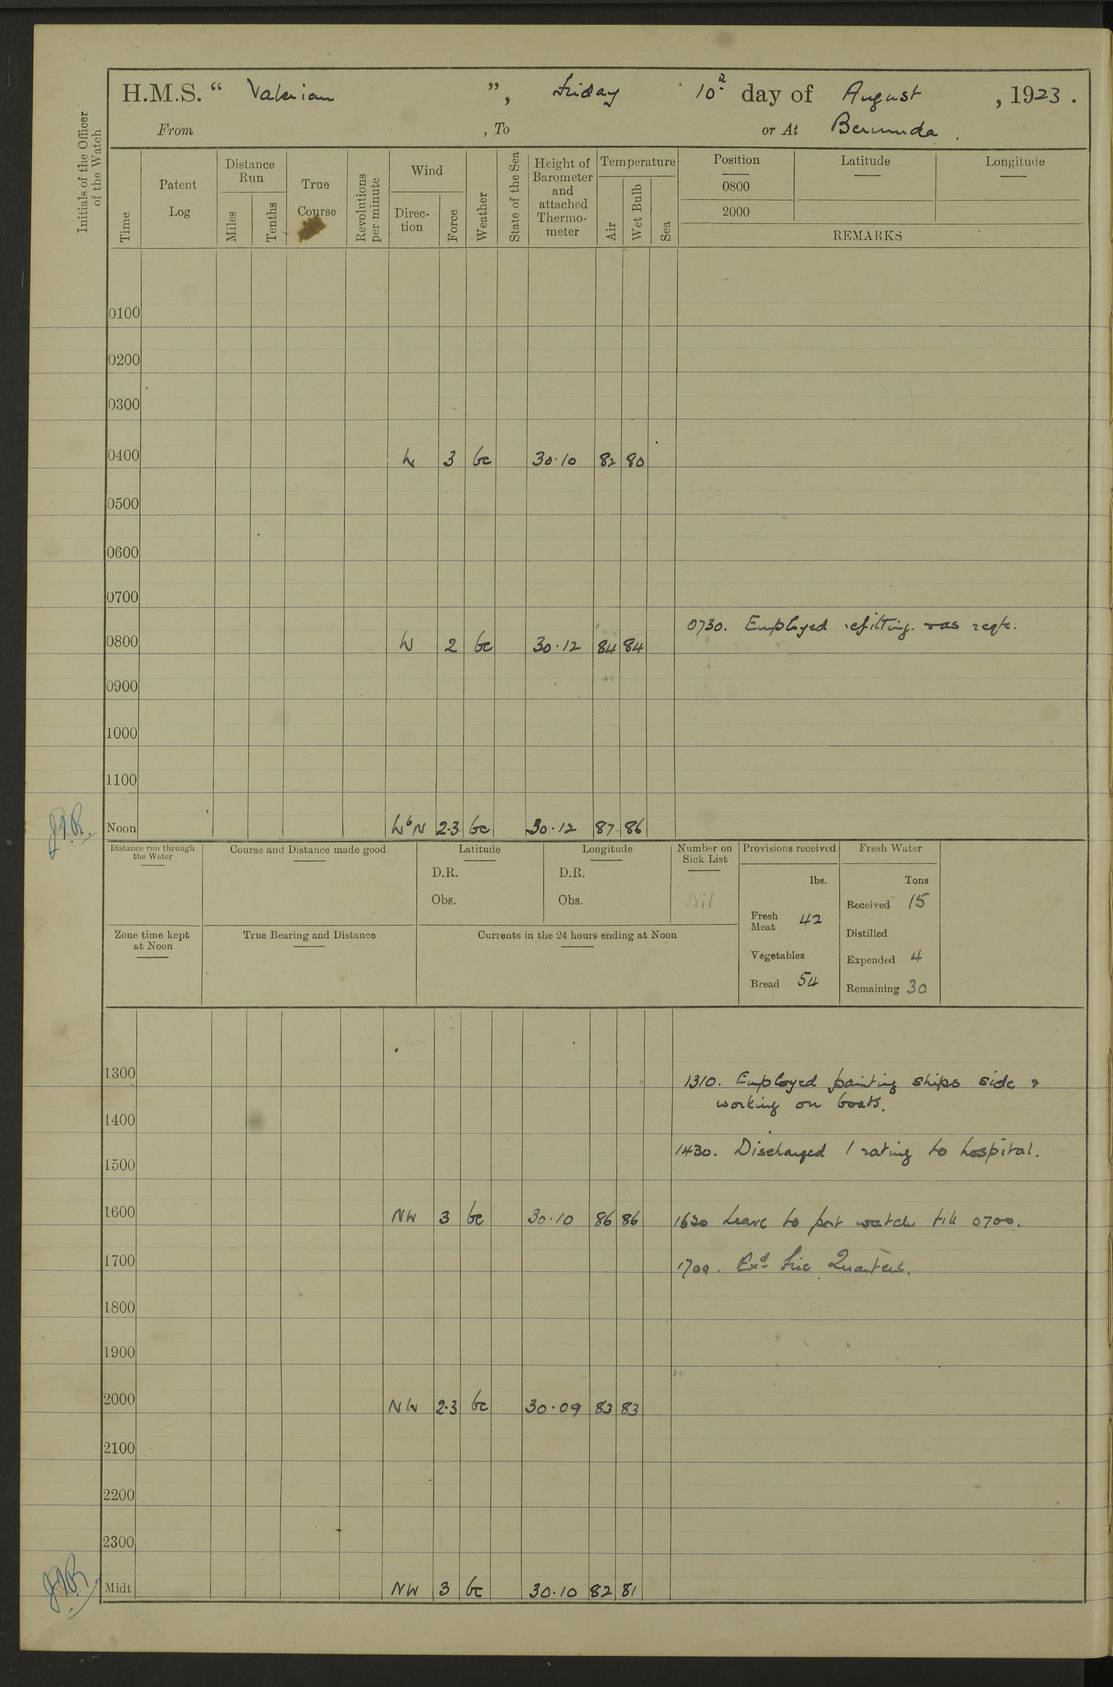 H.M.S. " Valerian ", Friday 10th day of August, 1923.
From , To or At Bermuda.
Initials of the Officer of the Watch
Time
Patent Log
Distance Run
Miles
Tenths
True Course
Revolutions per minute
Wind
Direction
Force
Weather
State of the Sea
Height of Barometer and attached Thermometer
Temperature
Air
Wet Bulb
Sea
Position Latitude Longitude
0800
2000
REMARKS
0100
0200
0300
0400 W 3 bc 30·10 82 80
0500
0600
0700
0730. Employed refitting as reqte.
0800 W 2 bc 30·12 84 84
0900
1000
1100
Noon WbN 2·3 bc 30·12 87 86
Distance run through the Water
Course and Distance made good
Latitude
D.R.
Obs.
Longitude
D.R.
Obs.
Number on Sick List
Nil
Provisions received
lbs.
Fresh Meat 42
Vegetables
Bread 54
Fresh Water
Tons
Received 15
Distilled
Expended 4
Remaining 30
Zone time kept at Noon
True Bearing and Distance
Currents in the 24 hours ending at Noon
1300
1310. Employed painting ships side &
working on boats.
1400
1430. Discharged 1 rating to hospital.
1500
1600 NW 3 bc 30·10 86 86
1630 Leave to port watch till 0700.
1700
1700. Exd Fire Quarters.
1800
1900
2000 NW 2·3 bc 30·09 83 83
2100
2200
2300
Midt NW 3 bc 30·10 82 81